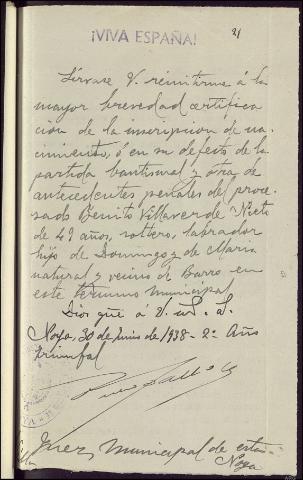 ¡VIVA ESPAÑA!
21
Sírvase V. remitirme á la
mayor brevedad certifica
ción de la inscripcion de na-
cimiento, ó en su defecto de la
partida bautismal y otra de
antecedentes penales del proce-
sado Benito Villaverde Nieto
de 49 años, soltero, labrador
hijo de Domingo y de Maria
natural y vecino de Barro en
este termino municipal
Dios gue á V. m. a.
Noya, 30 de Junio de 1938 - 2º Año
triunfal
Juez Municipal de esta
Noya